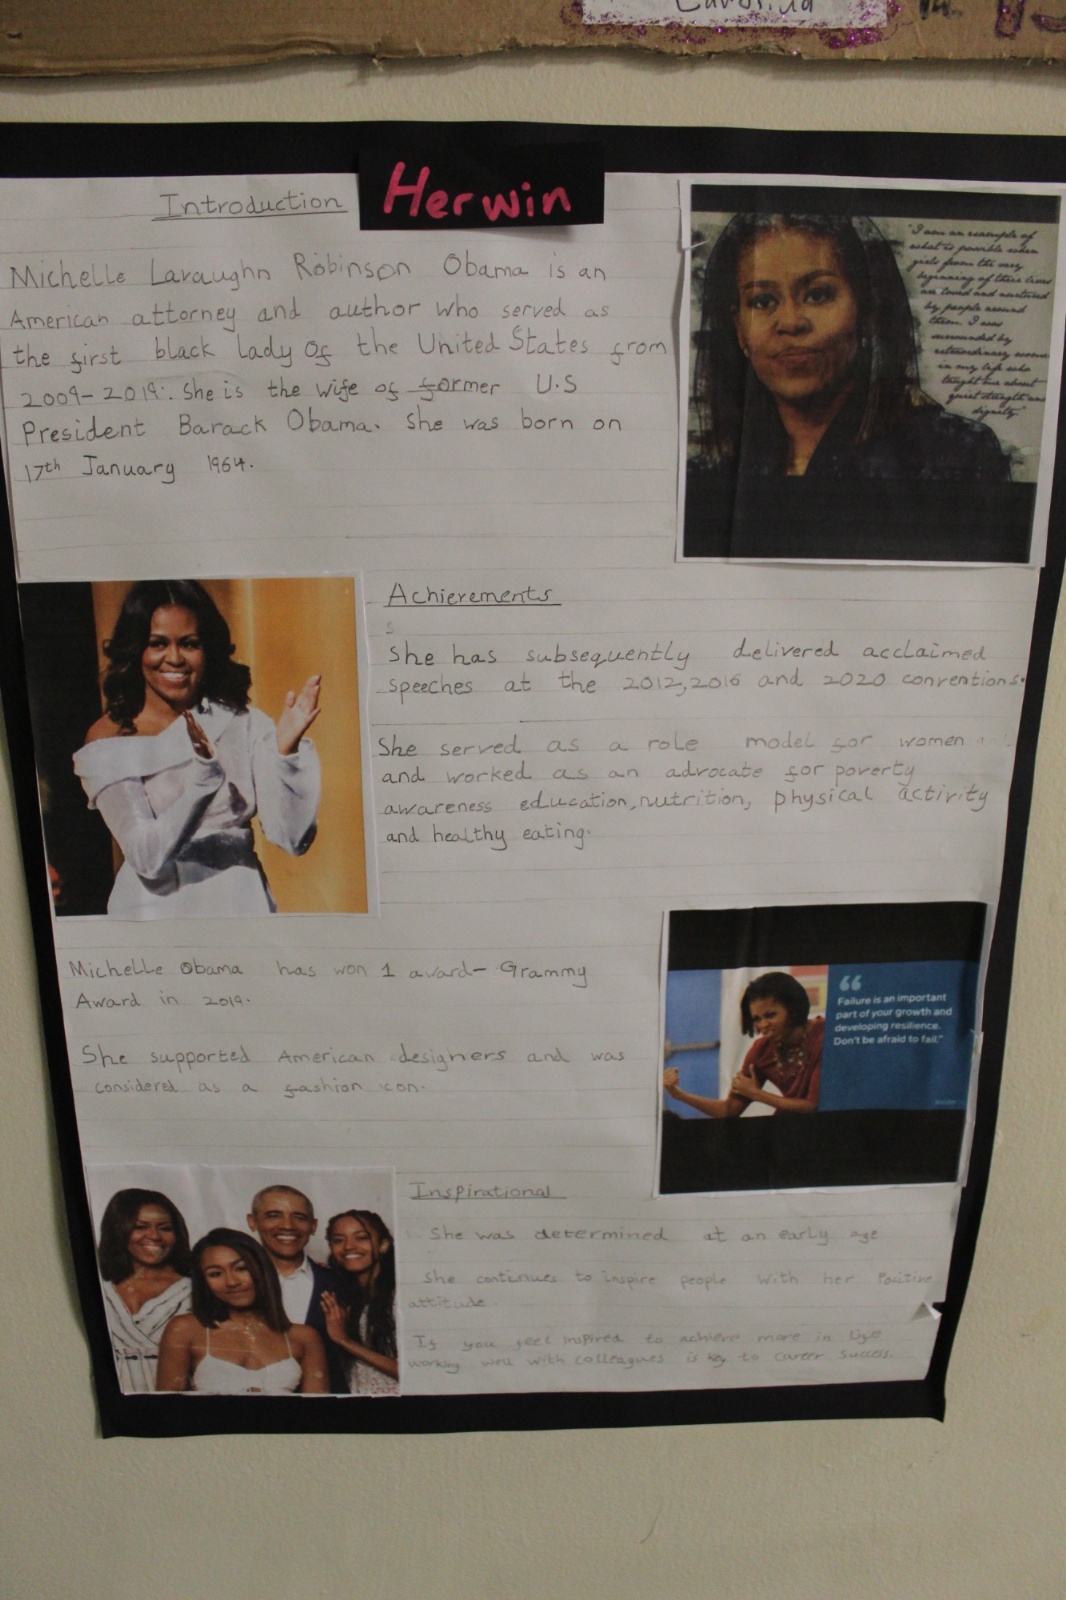 Carolina
Herwin
Introduction
Michelle Lavaughn Robinson Obama is an
American attorney and author who served as
the first black lady of the United States from
2009-2019. She is the wife of former U.S
President Barack Obama. She was born on
17th January 1964.
"I am an example of
what is possible when
girls from the very
beginning of their lives
are loved and nurtured
by people around
them. I was
surrounded by
extraordinary women
in my life who
taught me about
quiet strength and
dignity"
Achievements
S
She has subsequently delivered acclaimed
speeches at the 2012, 2016 and 2020 conventions.
She served as a role model for women
and worked as an advocate for poverty
awareness education, nutrition, physical activity
and healthy eating.
Michelle Obama has won 1 award- Grammy
Award in 2019.
She supported American designers and was
considered as a fashion icon.
“
Failure is an important
part of your growth and
developing resilience.
Don't be afraid to fail."
Inspirational
She was determined at an early age
She continues to inspire people with her Positive
attitude.
If you feel inspired to achieve more in life
working well with colleagues is key to career success.